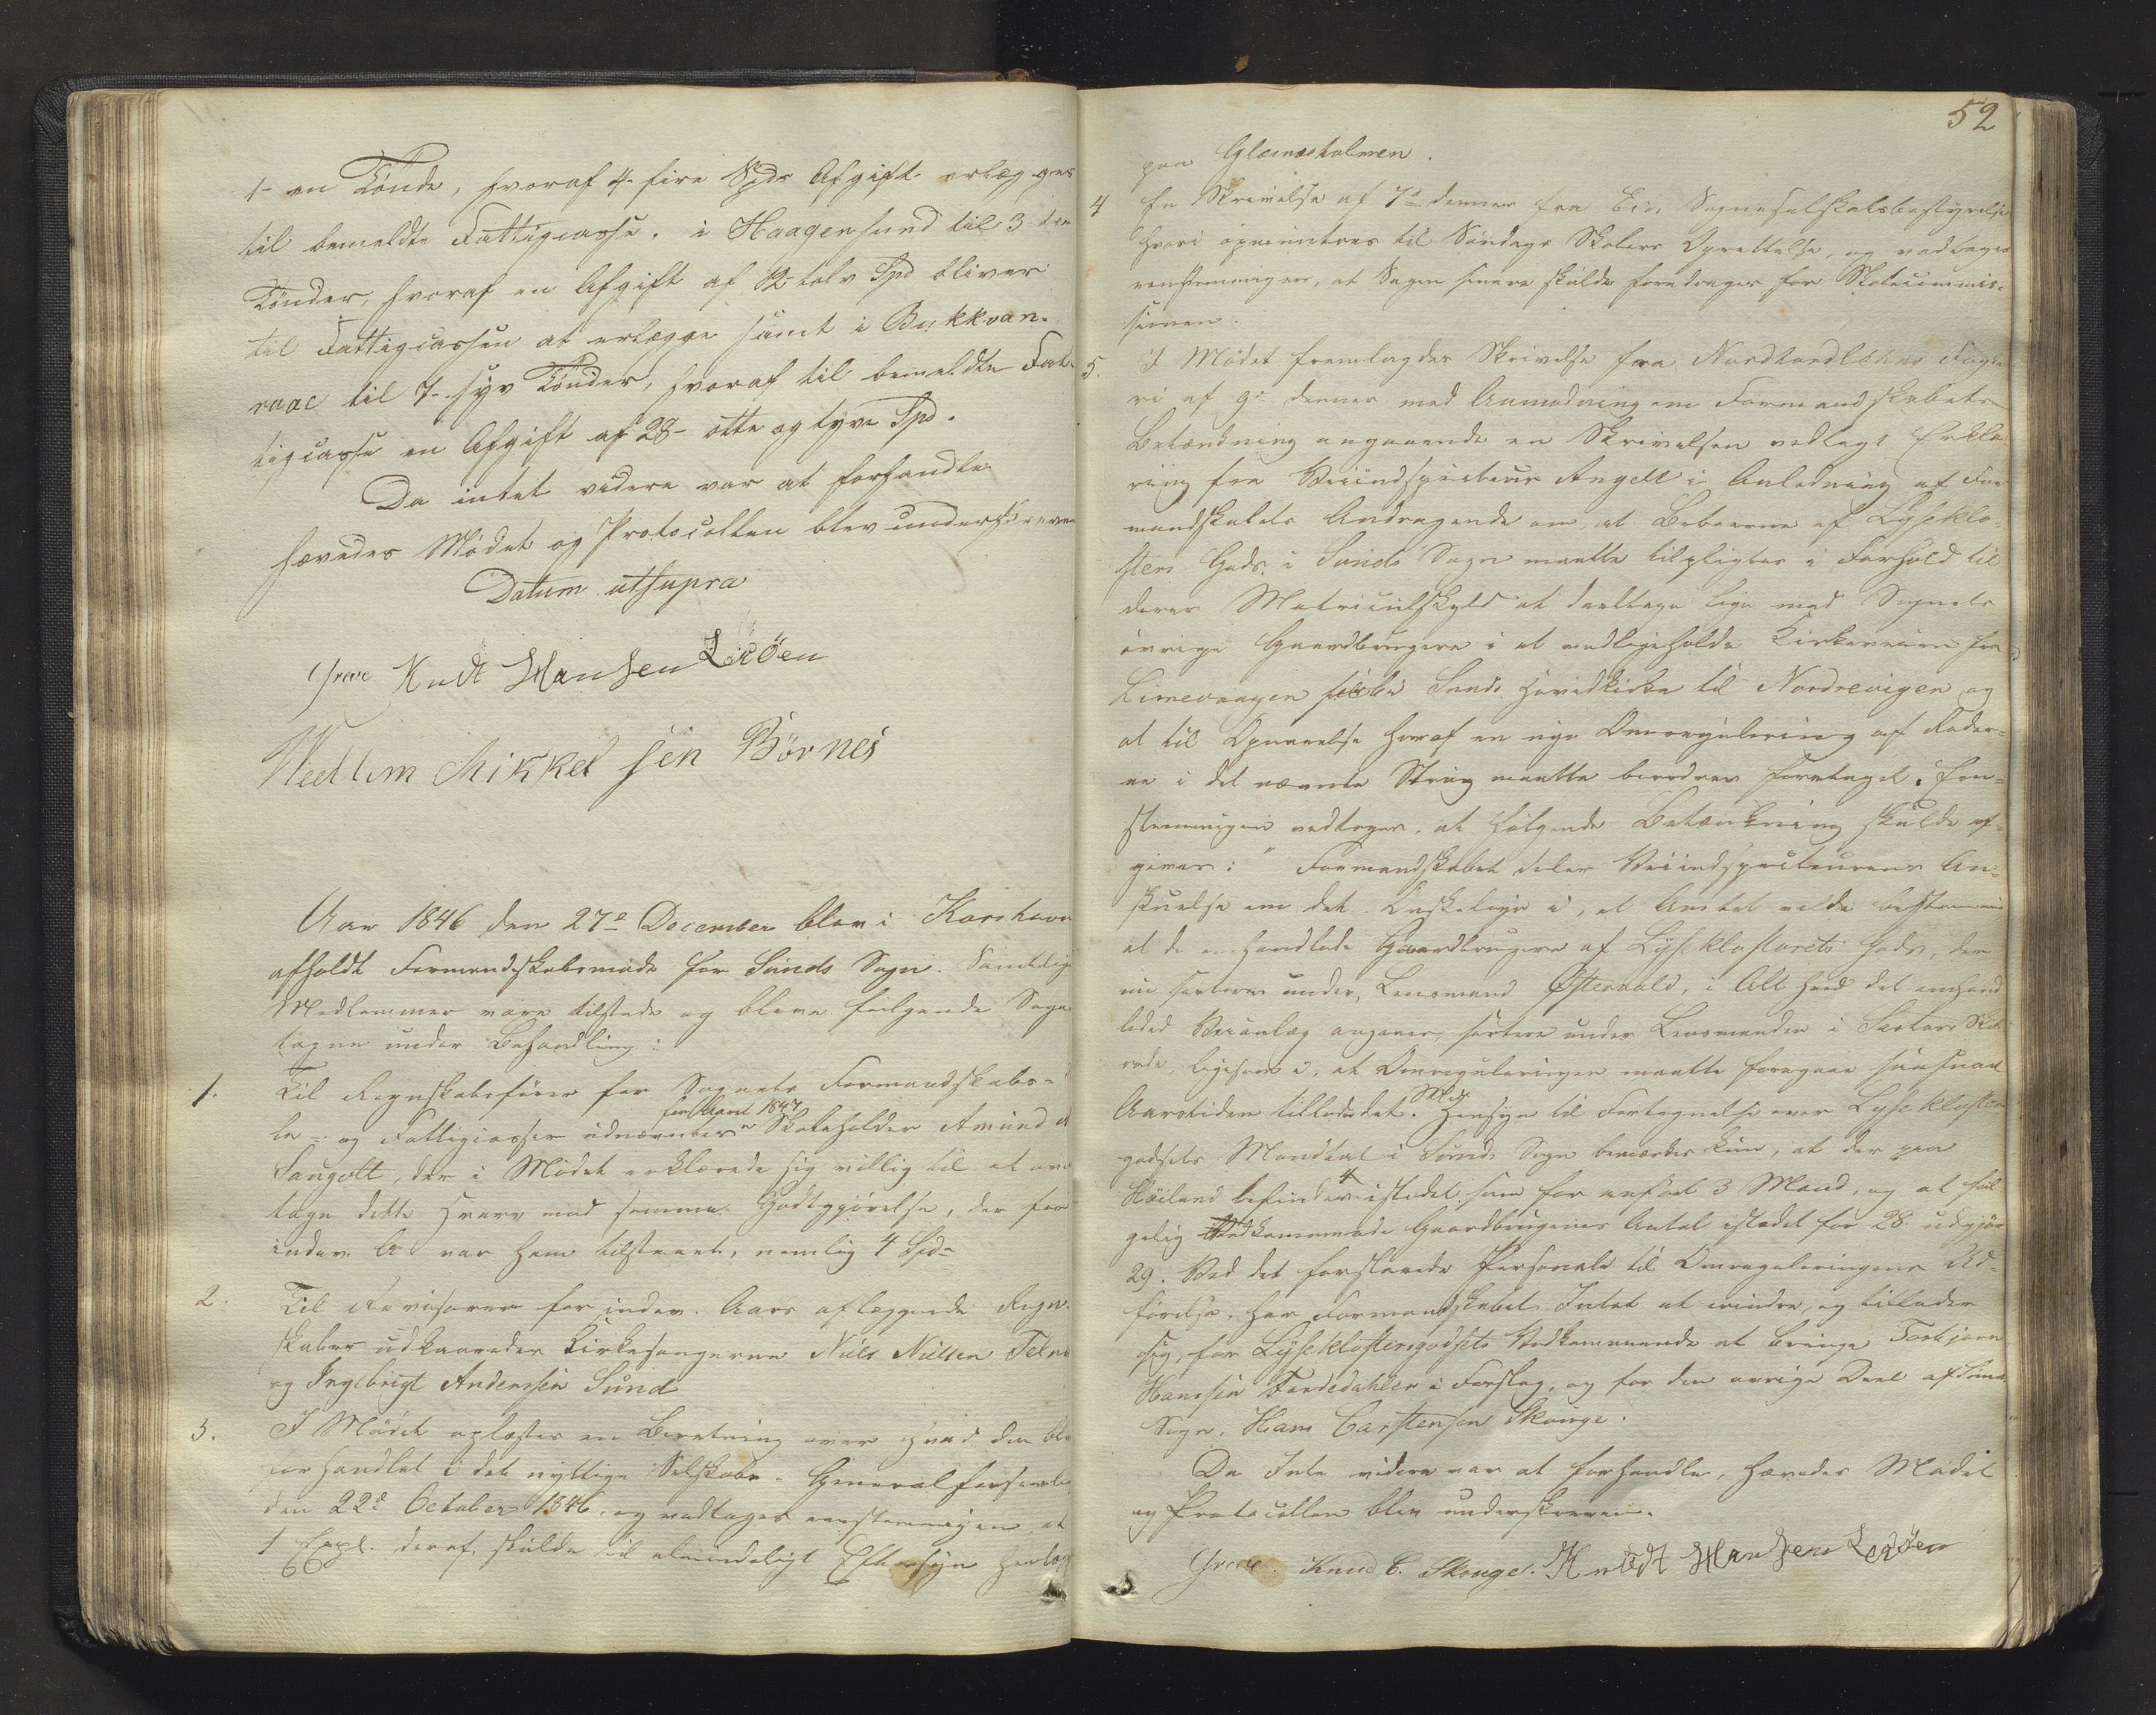 1- en Tønde, hvoraf 4- fire Spds Afgift erlægges
til bemeldte Fattigcasse. i Haagensund til 3 tre
Tønder, hvoraf en Afgift af 12- tolv Spd bliver
til Fattigcassen at erlægge samt i Bukkvan-
raae til 7- syv Tønder, hvoraf til bemeldte Fat-
tigcasse en Afgift af 28- otte og tyve Spd.
Da intet videre var at forhandle
hævedes Mødet og Protocollen blev underskreven
Datum utsupra
Grove Hansen Lerøen
Mikkel sen Børnes
Aar 1846 den 27e December blev i Korshavn
afholdt Formandskabsmøde for Sunds Sogn. Samtlige
Medlemmer vare tilstede og bleve følgende Sager
tagne under Behandling:
1. Til Regnskabsfører for Sognets Formandskabs-
for Aaret 1847
le- og Fattigcasser udnævntes Skoleholder Amund
Sangolt, der i Mødet erklærede sig villig til at over
tage dette Hverv mod samme Godtgjørelse, der for
indev. A. var ham tilstaaet, nemlig 4 Spd
2. Til Revisorer for indev. Aars aflæggende Regn-
skaber udkaaredes Kirkesangerne Niels Nielsen Telne
og Ingebrigt Anderssen Sund
3. I Mødet oplæstes en Beretning over Hvad der blev
forhandlet i det nyttige Selskabs Generalforsamling
den 22d October 1846, og vedtoges eenstemmigen, at
1 Expl. deraf skulde til almindeligt Eftersyn
52
paa Glæsnæsholmen.
4 En Skrivelse af 7de dennes fra Sogneselskabsbestyrelse
hvori opmuntres til Søndags Skolers Oprettelse, og vedtoges
eenstemmigen, at Sagen senere skulde foredrages for Skolecommis-
sionen.
5. I Mødet fremlagdes Skrivelse fra Nordhordlehns Fogde-
ri af 9de dennes med Anmodning om Formandskabets
Betænkning angaaende en Skrivelsen vedlagt Erklæ-
ring fra Veiindspecteur Angell i Anledning af For
mandskabets Andragende om, at Beboerne af Lyseklo-
sters Gods i Sunds Sogn maatte tilpligtes i Forhold til
deres Matriculskyld at deeltage lige med Sognets
øvrige Gaardbrugere i at vedligeholde Kirkeveien fra
Limevaagen forbi Sunds Hovedkirke til Nordrevigen og
at til Opnaaelse heraf en nye Omregulering af Roder-
ne i det nævnte Strøg maatte beordres foretaget. Een-
stemmigen vedtoges, at følgende Betænkning skulde af-
gives: " Formandskabet deler Veiindspecteurens An-
skuelse om det Ønskelige i, at Amtet vilde bestemme
at de omhandlede Gaardbrugere af Lyseklosterets Gods, der
nu sortere under Lensmand Østervold, i Alt hvad det omhand
lede Veianlæg angaaer, sortere under Lensmanden i Sartors Skib
rede, ligesom i, at Omreguleringen maatte foregaae saasnart
Aarstiden tillod det. Med Hensyn til Fortegnelse over Lyse Kloster
godsets Mandtal i Sunds Sogn bemærkes kun, at der paa
Høiland befindes 4 istedet som før anført 3 Mand, og at føl
gelig Vedkommende Gaardbrugeres Antal istedet for 28 udgjør
29. Ved det foreslaaede Personale til Omreguleringens Ud-
førelse, har Formandskabet Intet at erindre, og tillader
sig, for Lyseklostergodsets Vedkommende at bringe Torbjørn
Hanssen Tordedahlen i Forslag, og for den øvrige Deel af Sunds
Sogn, Hans Carstensen Skoge.
Da Inte videre var at forhandle, hævedes Mødet
og Protocollen blev underskreven.
Grove. Knud C. Skouge. Hansen Lerøen